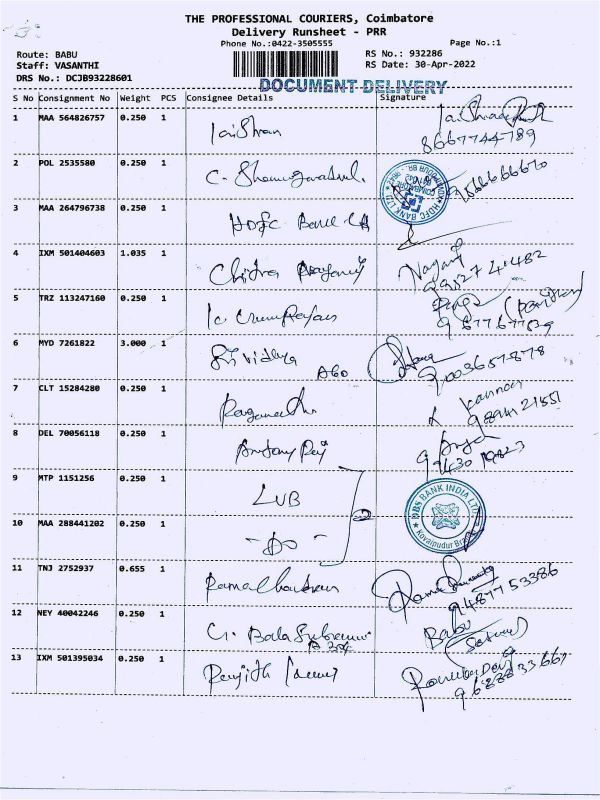 THE PROFESSIONAL COURIERS, Coimbatore
Delivery Runsheet - PRR
Phone No.:0422-3505555
Page No.:1
Route: BABU
Staff: VASANTHI
DRS No.: DCJB93228601
RS No.: 932286
RS Date: 30-Apr-2022
DOCUMENT DELIVERY
S No Consignment No Weight PCS Consignee Details Signature
1 MAA 564826757 0.250 1 Jaishran
8667744789
2 POL 2535580 0.250 1 C. Shanmugavadivel.
9566666670
HDFC BANK LTD
3 MAA 264796738 0.250 1 HDFC Bank
4 IXM 501404603 1.035 1 Chitra Nagamf
5 TRZ 113247160 0.250 1
6 MYD 7261822 3.000 1 Srividhya
9003657878
7 CLT 15284280 0.250 1 Raganath
Kannan
8 DEL 70056118 0.250 1 Antony Raj
9 MTP 1151256 0.250 1 LVB
DBS BANK INDIA LTD
Kovaipudur Branch
10 MAA 288441202 0.250 1 -DO-
11 TNJ 2752937 0.655 1 Ramachandran
9487753386
12 NEY 40042246 0.250 1 G. Bala Subramani Babu
13 IXM 501395034 0.250 1 Ranjith Kumar
9688833667